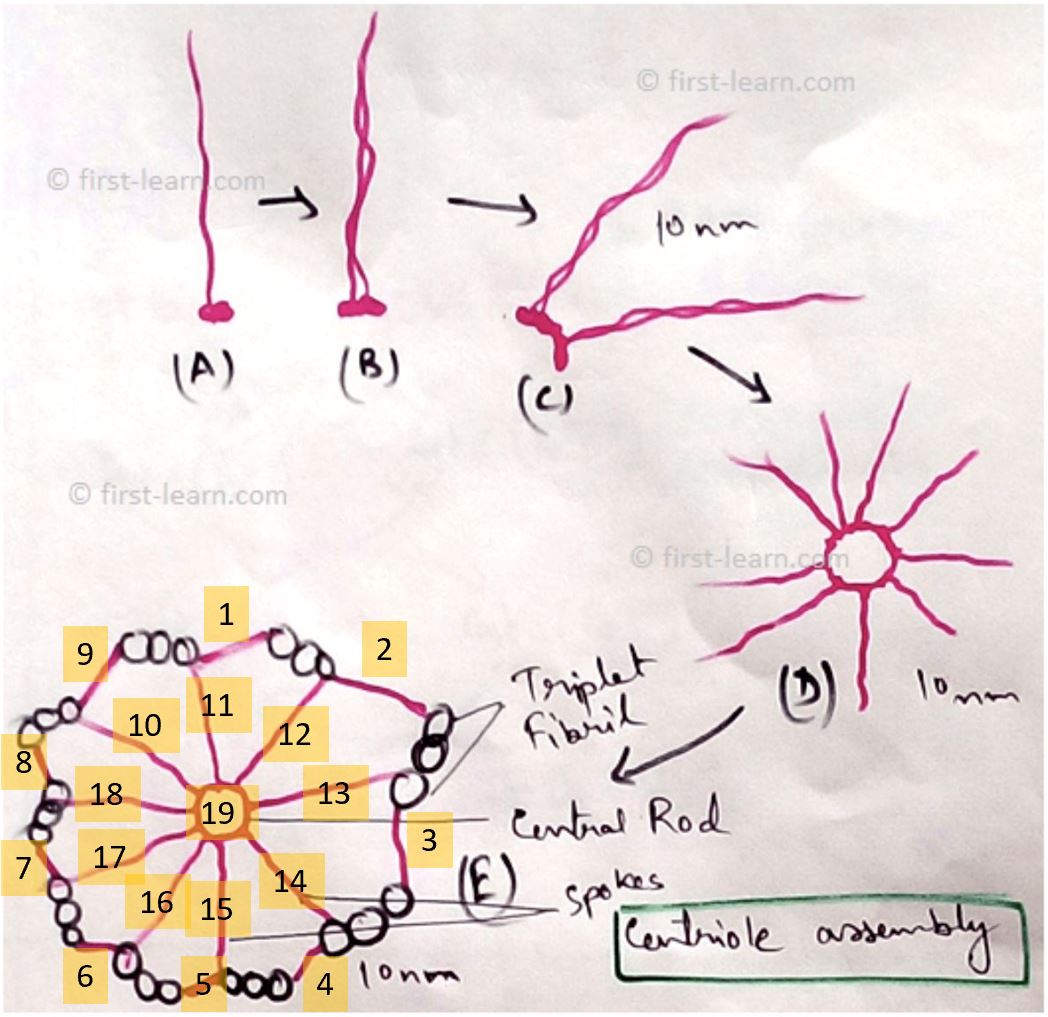 © first-learn.com
© first-learn.com
10 nm
(A)
(B)
(C)
© first-learn.com
© first-learn.com
(D)
10 nm
1
2
9
Triplet
Fibril
11
10
12
8
18
13
19
Central Rod
3
7
17
14
(E)
Spokes
16
15
Centriole assembly
6
5
4
10 nm